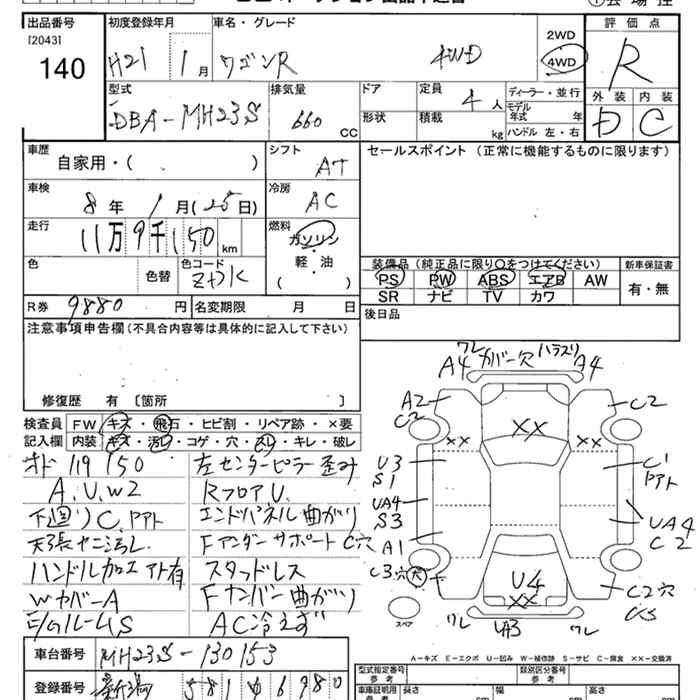 出品番号
[2043]
140
初度登録年月
H21 1月
車名・グレード
ワゴンR 4WD
2WD
4WD
評価点
R
型式
DBA-MH23S
排気量
660 CC
ドア
形状
定員
4人
積載
kg
ディーラー・並行
モデル年式 年
ハンドル 左・右
外装 内装
D C
車歴
自家用・( )
シフト
AT
車検
8年 1月(25日)
冷房
AC
走行
11万9千150km
燃料
ガソリン
軽・油
( )
色
色替
色コード
ZDK
R券 9880円
名変期限 月 日
セールスポイント (正常に機能するものに限ります)
装備品 (純正品に限り○をつけてください)
新車保証書
PS PW ABS エアB AW
有・無
SR ナビ TV カワ
後日品
注意事項申告欄(不具合内容等は具体的に記入して下さい)
修復歴 有 〔箇所 〕
検査員 FW キズ・飛石・ヒビ割・リペア跡・×要
記入欄 内装 キズ・汚れ・コゲ・穴・スレ・キレ・破レ
119150
A.U.W2
下廻りC.アト
天張ヤニ汚レ
ハンドル加工アト有
WカバーA
左センターピラー歪み
RフロアU.
エンドパネル曲がり
FアンダーサポートC穴
スタッドレス
Fナンバー曲がり
AC冷えず
ワレ カバー穴 ハラスリ
A4 A4
A2
C2
C2
××
××
××
U3
S1
UA4
S3
A1
C3穴
C1
アト
UA4
C2
U4
××
C2穴
スペア
ワレ UA3 ワレ
車台番号 MH23S-130153
登録番号 新潟 581 6980
A-キズ E-エクボ U-凹み W-補修跡 S-サビ C-腐食 ××-交換済
型式指定番号
参考
類別区分番号
参考
車庫証明用
長さ cm
幅 cm
高さ cm